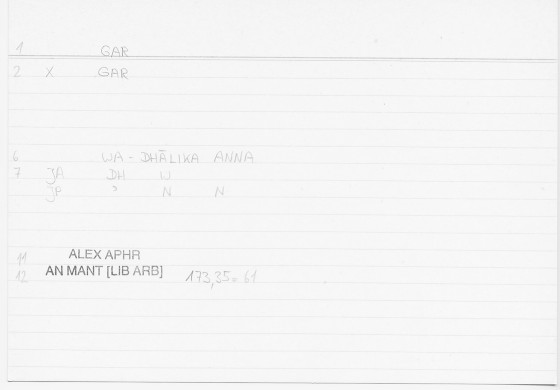 1 GAR
2 X GAR
6 WA - DHĀLIKA ANNA
7 JA DH W
JA ' N N
11 ALEX APHR
12 AN MANT [LIB ARB] 173,35 = 61